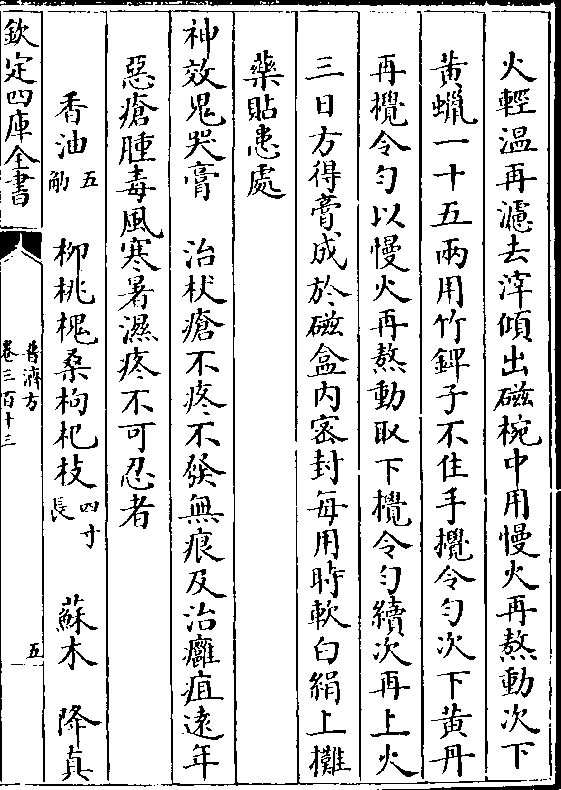 火輕温再濾去滓傾出磁椀中用慢火再熬動次下
黄蠟一十五兩用竹錍子不住手攪令匀次下黄丹
再攪令匀以慢火再熬動取下攪令匀續次再上火
三日方得膏成於磁盒内密封每用時軟白絹上攤
藥貼患處
神效鬼哭膏　治杖瘡不疼不發無痕及治癰疽遠年
惡瘡腫毒風寒暑濕疼不可忍者
香油五觔　柳桃槐桑枸杞枝四寸長　蘇木　降真
欽定四庫全書
普濟方
卷三百十三
五